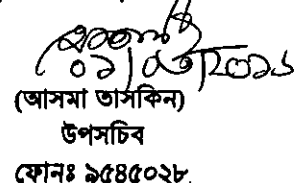 (আসমা তাসকিন)
উপসচিব
ফোনঃ ৯৫৪৫০২৮